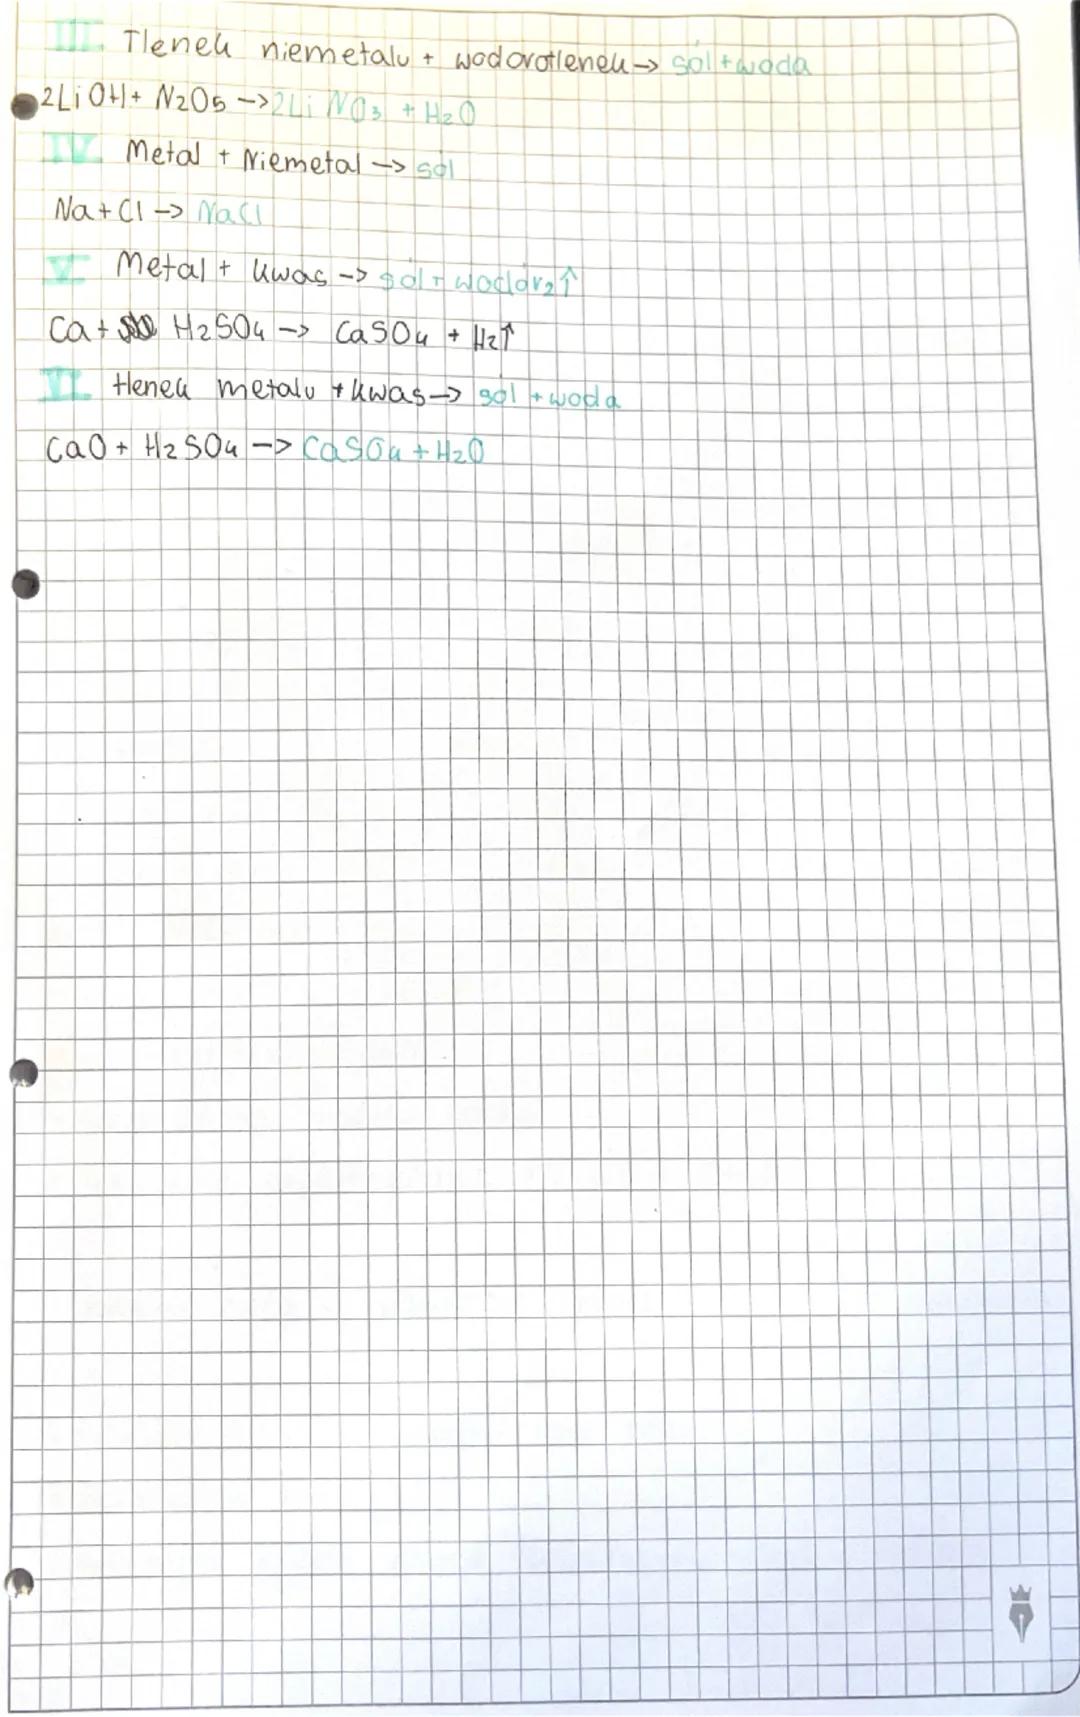 III. Tlenek niemetalu + wodorotlenek -> sól + woda
2LiOH + N2O5 -> 2LiNO3 + H2O
IV. Metal + Niemetal -> sól
Na + Cl -> NaCl
V. Metal + kwas -> sól + wodór2↑
Ca + H2SO4 -> CaSO4 + H2↑
VI. tlenek metalu + kwas -> sól + woda
CaO + H2SO4 -> CaSO4 + H2O